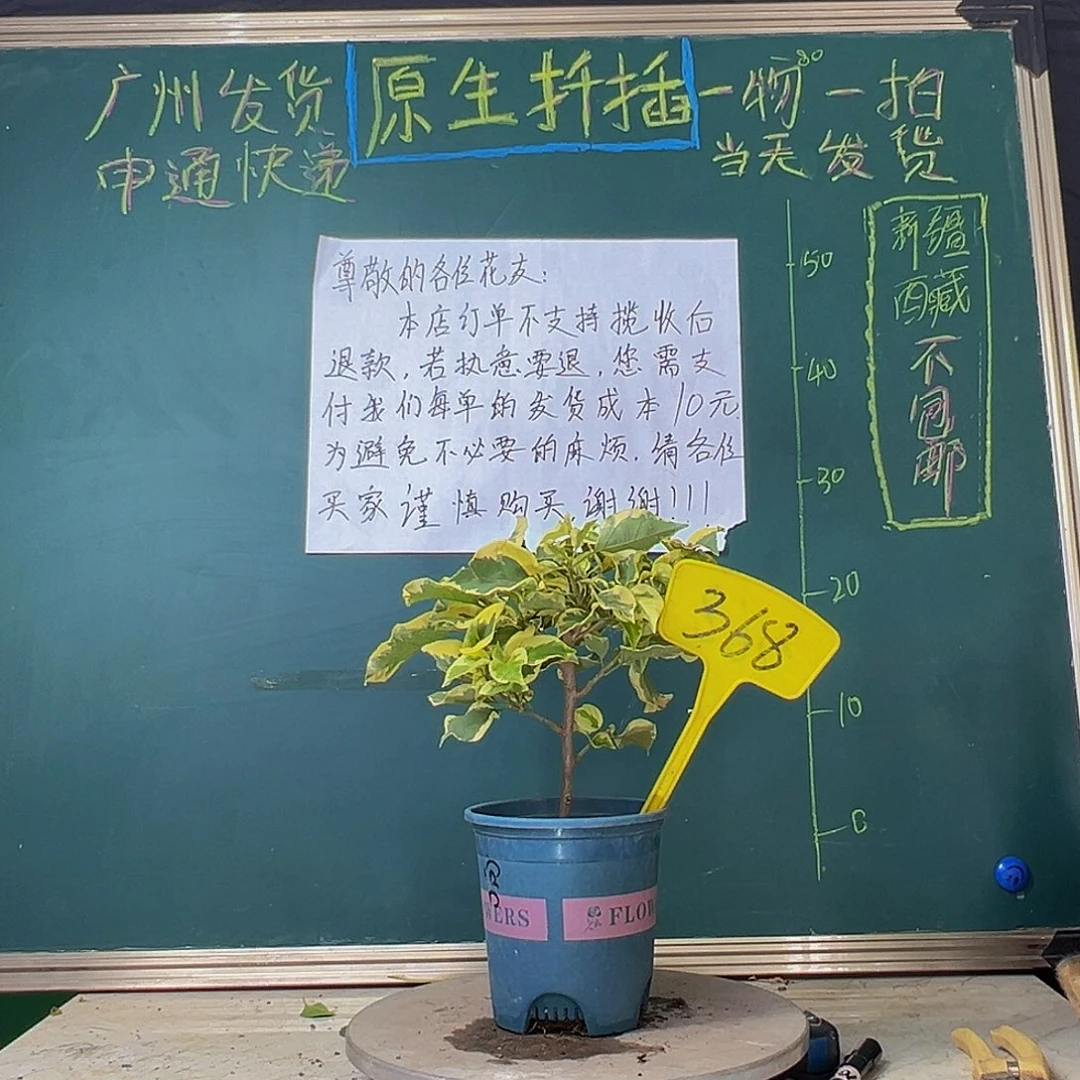 广州发货
申通快递
原生扦插
一物一拍
当天发货
新疆
西藏
不
包
邮
尊敬的各位花友:
本店订单不支持揽收后
退款,若执意要退,您需支
付我们每单的发货成本10元.
为避免不必要的麻烦.请各位
买家谨慎购买,谢谢!!!
50
40
30
20
10
0
368
WERS
FLOW